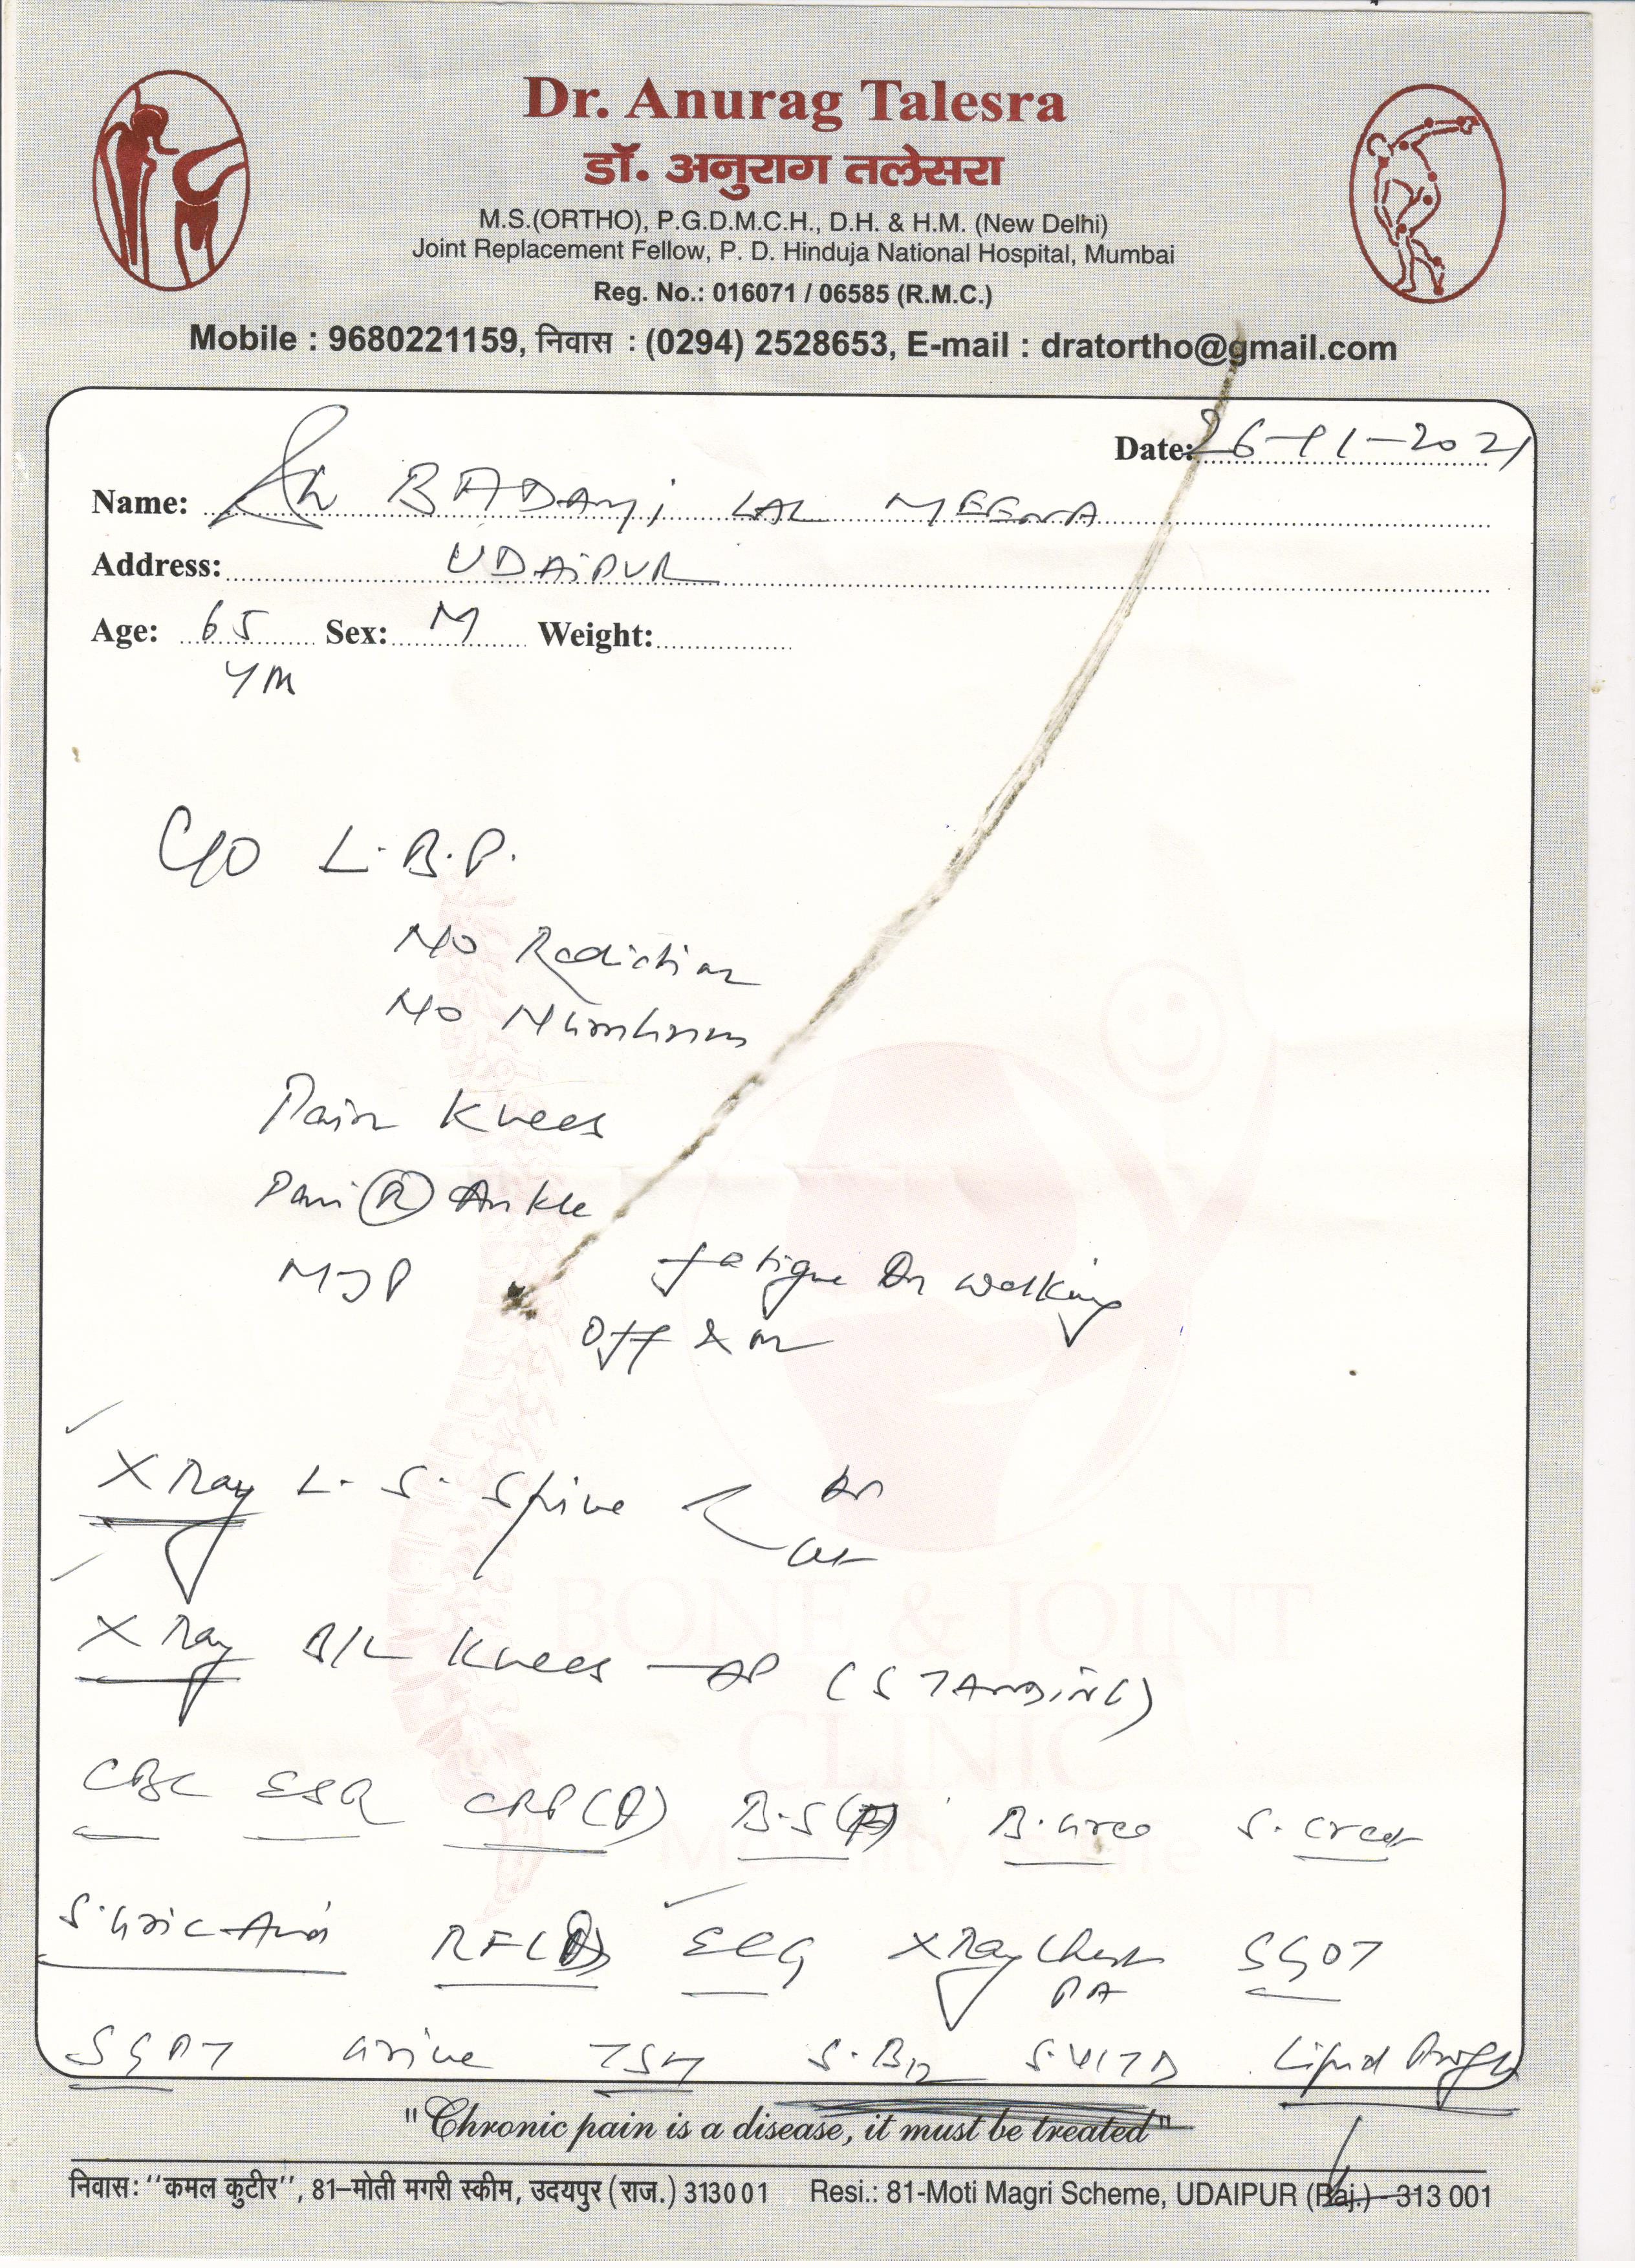 Dr. Anurag Talesra
डॉ. अनुराग तलेसरा
M.S.(ORTHO), P.G.D.M.C.H., D.H. & H.M. (New Delhi)
Joint Replacement Fellow, P. D. Hinduja National Hospital, Mumbai
Reg. No.: 016071 / 06585 (R.M.C.)
Mobile : 9680221159, निवास : (0294) 2528653, E-mail : dratortho@gmail.com
Date: 26-11-2021
Name: BADAMI LAL MEENA
Address: UDAIPUR
Age: 65 Sex: M Weight:
C/O L.B.P.
No Radiation
No Numbness
Pain Knees
Pain (R) Ankle
MJP
Fatigue on walking
Off & on
X Ray L. S. Spine < AP
Lat
X Ray B/L Knees - AP (STANDING)
CBC ESR CRP(Q) B.S(R) B.urea S.creat
S.Uric Acid RF(Q) ECG X Ray Chest SGOT
PA
SGPT Urine TSH S.B12 S.VIT D Lipid Profile
BONE & JOINT
CLINIC
"Chronic pain is a disease, it must be treated"
निवास: ''कमल कुटीर'', 81–मोती मगरी स्कीम, उदयपुर (राज.) 313001 Resi.: 81-Moti Magri Scheme, UDAIPUR (Raj.) - 313 001